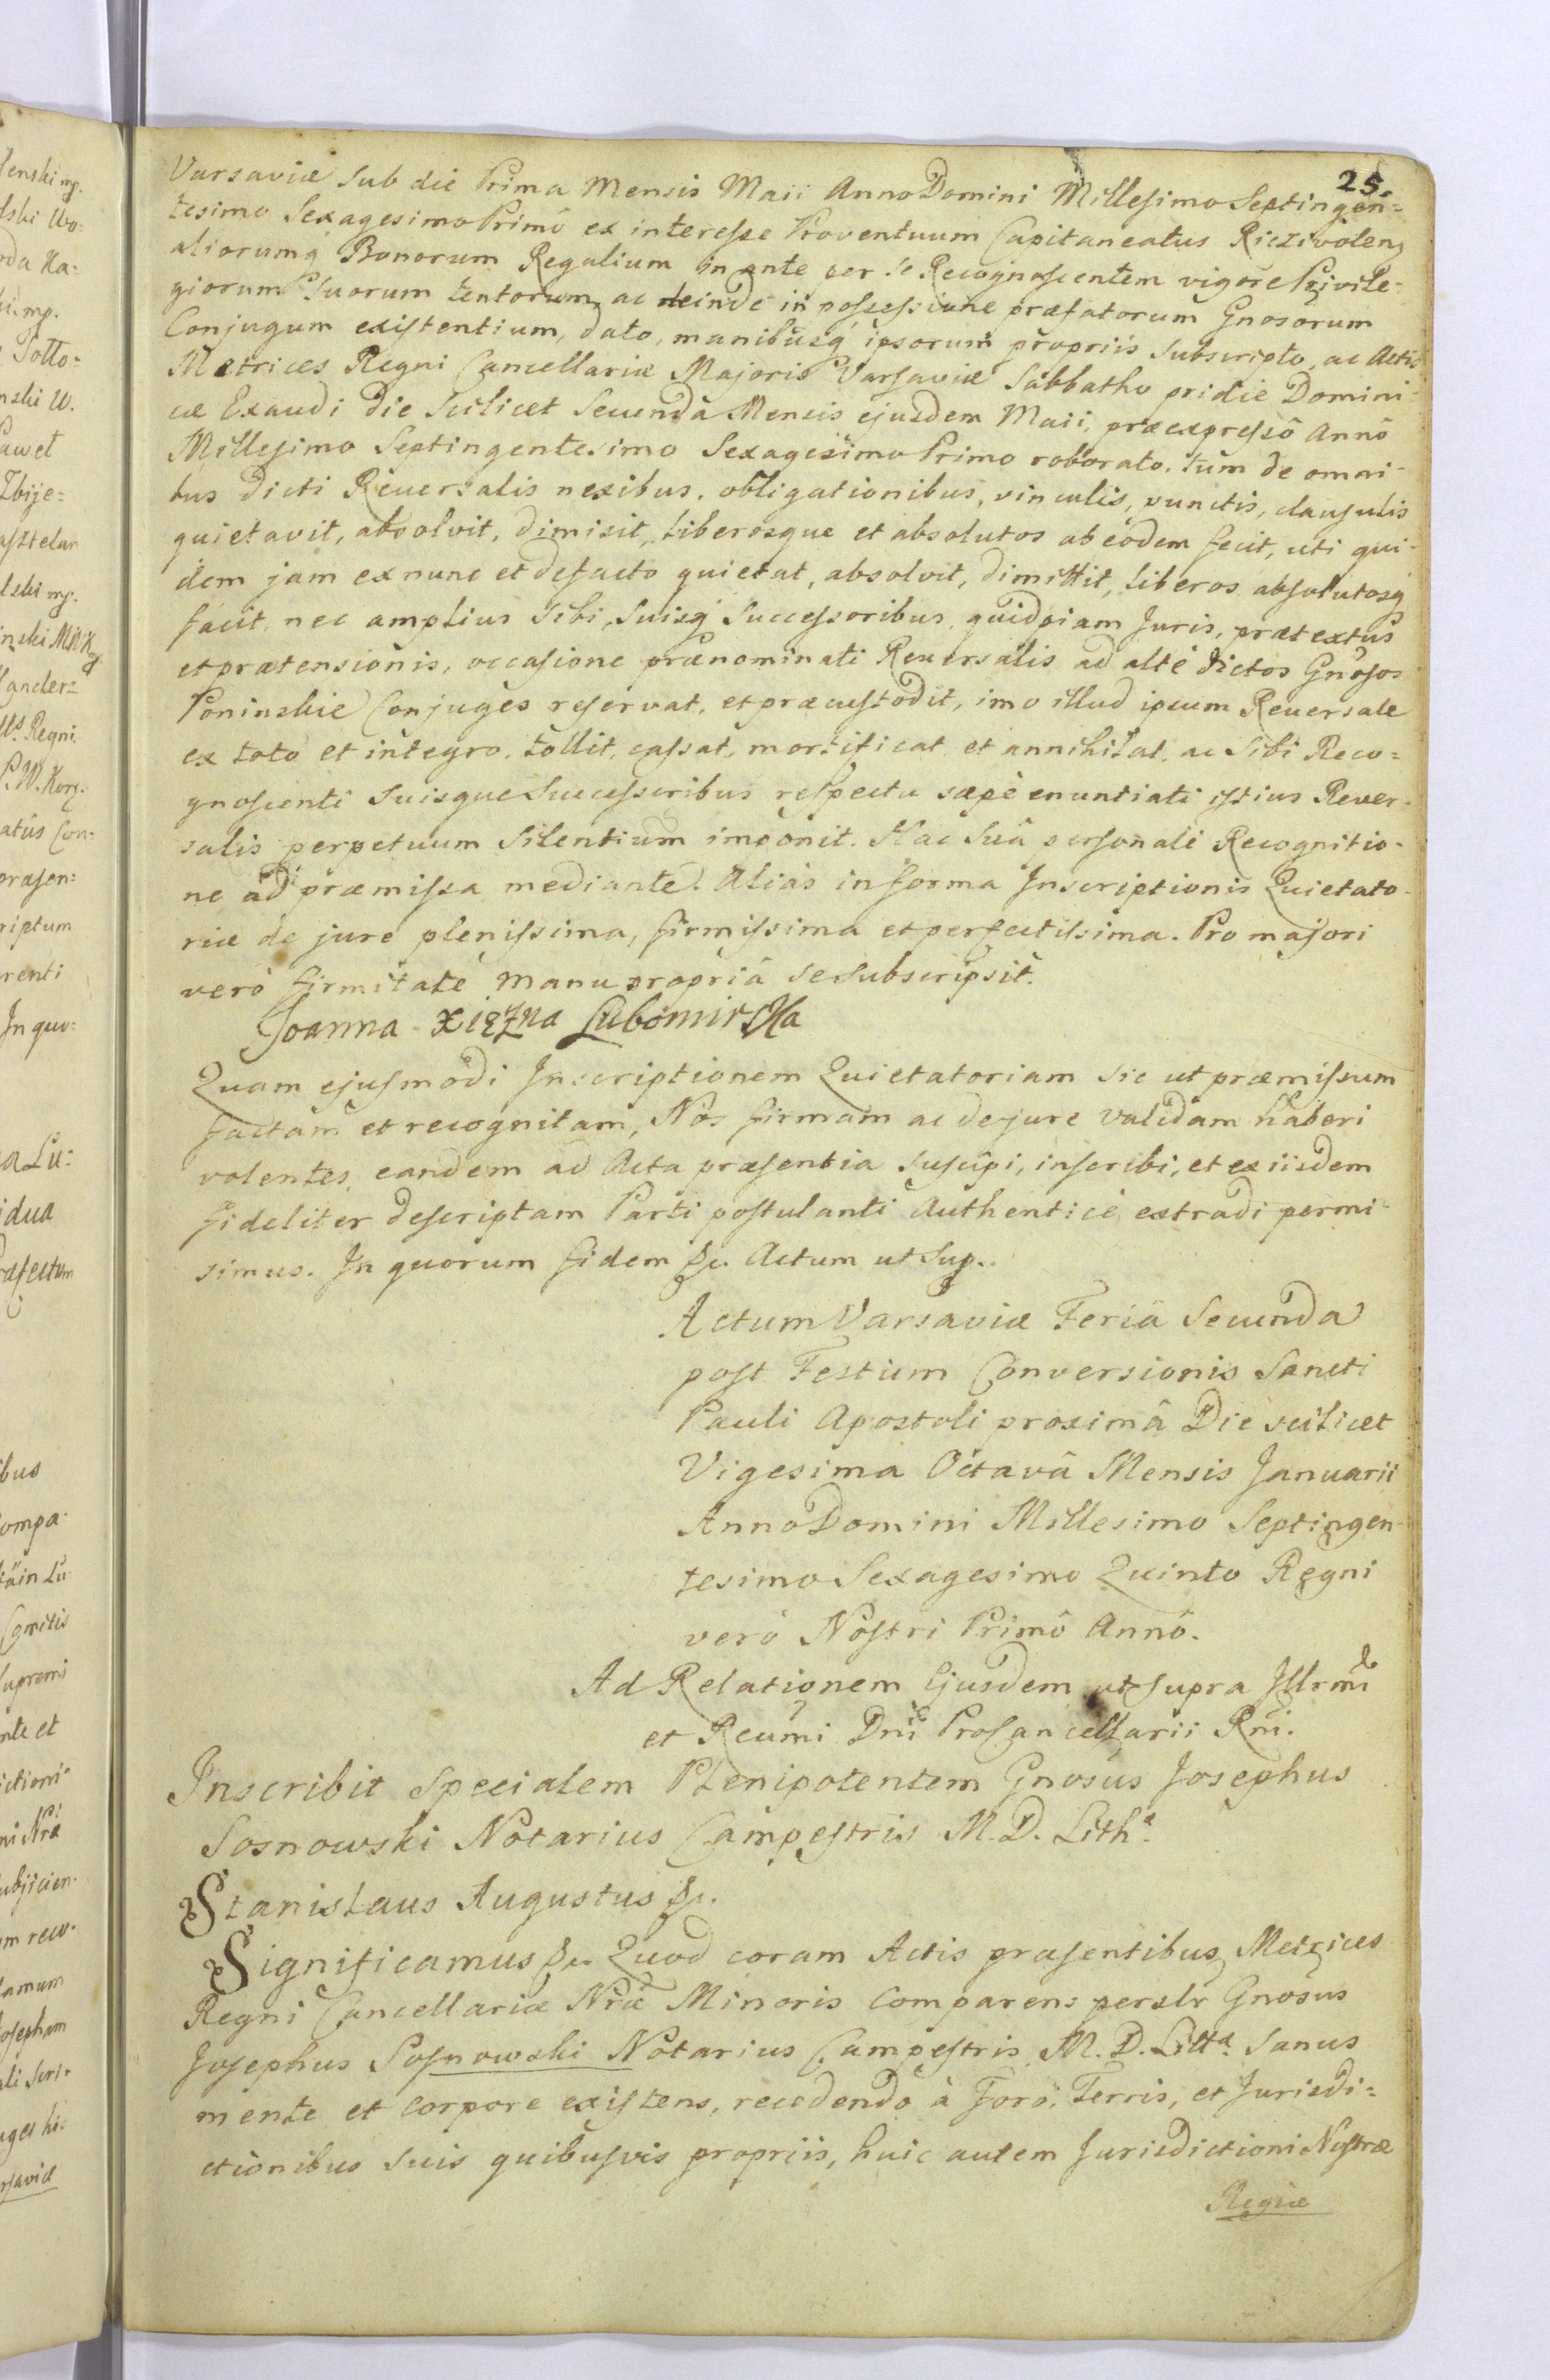 25.
Varsaviæ Sub die Prima Mensis Maii Anno Domini Millesimo Septingen=
tesimo Sexagesimo Primô ex interesse Proventuum Capitaneatus Riczivolen
aliorumq Bonorum Regalium in ante per se Recognoscentem vigore Privile-
giorum Suorum tentorum, ac deinde in possessione præfatorum Gnosorum
Conjugum existentium, dato, manibusq ipsorum propriis subscripto, ac Actis
Metrices Regni Cancellariæ Majoris Varsaviæ Sabbatho pridie Domini-
cæ Exaudi die Scilicet Secundâ Mensis ejusdem Maii, præexpressô Annô
Millesimo Septingentesimo Sexagesimo Primo roborato, tùm de omni-
bus dicti Reversalis nexibus, obligationibus, vinculis, punctis, clausulis
quietavit, absolvit, dimisit, liberosque et absolutos ab eôdem fecit, uti qui-
dem jam ex nunc et de facto quietat, absolvit, dimittit, liberos absolutosq
facit, nec amplius sibi, suisq Successoribus quidpiam Juris, prætextus
et prætensionis, occasione prænominati Reversalis ad altè dictos Gnosos
Poninskie Conjuges reservat, et præcustodit, imo illud ipsum Reversale
ex toto et integro, tollit, cassat, mortificat et annihilat, ac Sibi Reco=
gnoscenti Suisque Successoribus respectu sæpè enuntiati istius Rever-
salis perpetuum Silentium imponit. Hac Suâ personali Recognitio-
ne ad præmissa mediante. Aliàs in forma Inscriptionis Quietato-
riæ de jure plenissima, firmissima et perfectissima. Pro majori
verò firmitate manu propriâ se subscripsit.
Joanna Xiężna Lubomirska
Quam ejusmodi Inscriptionem Quietatoriam sic ut præmissum
factam et recognitam, Nos firmam ac de jure validam haberi
volentes, eandem ad Acta præsentia suscipi, inscribi, et ex iisdem
fideliter descriptam Parti postulanti Authenticè extradi permi-
simus. In quorum fidem &c. Actum ut Sup..
Actum Varsaviæ Feriâ Secunda
post Festum Conversionis Sancti
Pauli Apostoli proximâ Die scilicet
Vigesima Octavâ Mensis Januarii
Anno Domini Millesimo Septingen-
tesimo Sexagesimo Quinto Regni
verò Nostri Primô Annô.
Ad Relationem Ejusdem ut supra Illrmi
et Reumi Dni Procancellarii Rni.
Inscribit Specialem Plenipotentem Gnosus Josephus
Sosnowski Notarius Campestris M. D. Lithª
Stanislaus Augustus &c.
Significamus &c. Quod coram Actis præsentibus Metrices
Regni Cancellariæ Nræ Minoris comparens perslr Gnosus
Josephus Sosnowski Notarius Campestris M. D. Littª. Sanus
mente et corpore existens, recedendo à Foro, Terris, et Jurisdi=
ctionibus suis quibusvis propriis, huic autem Jurisdictioni Nostræ
Regiæ